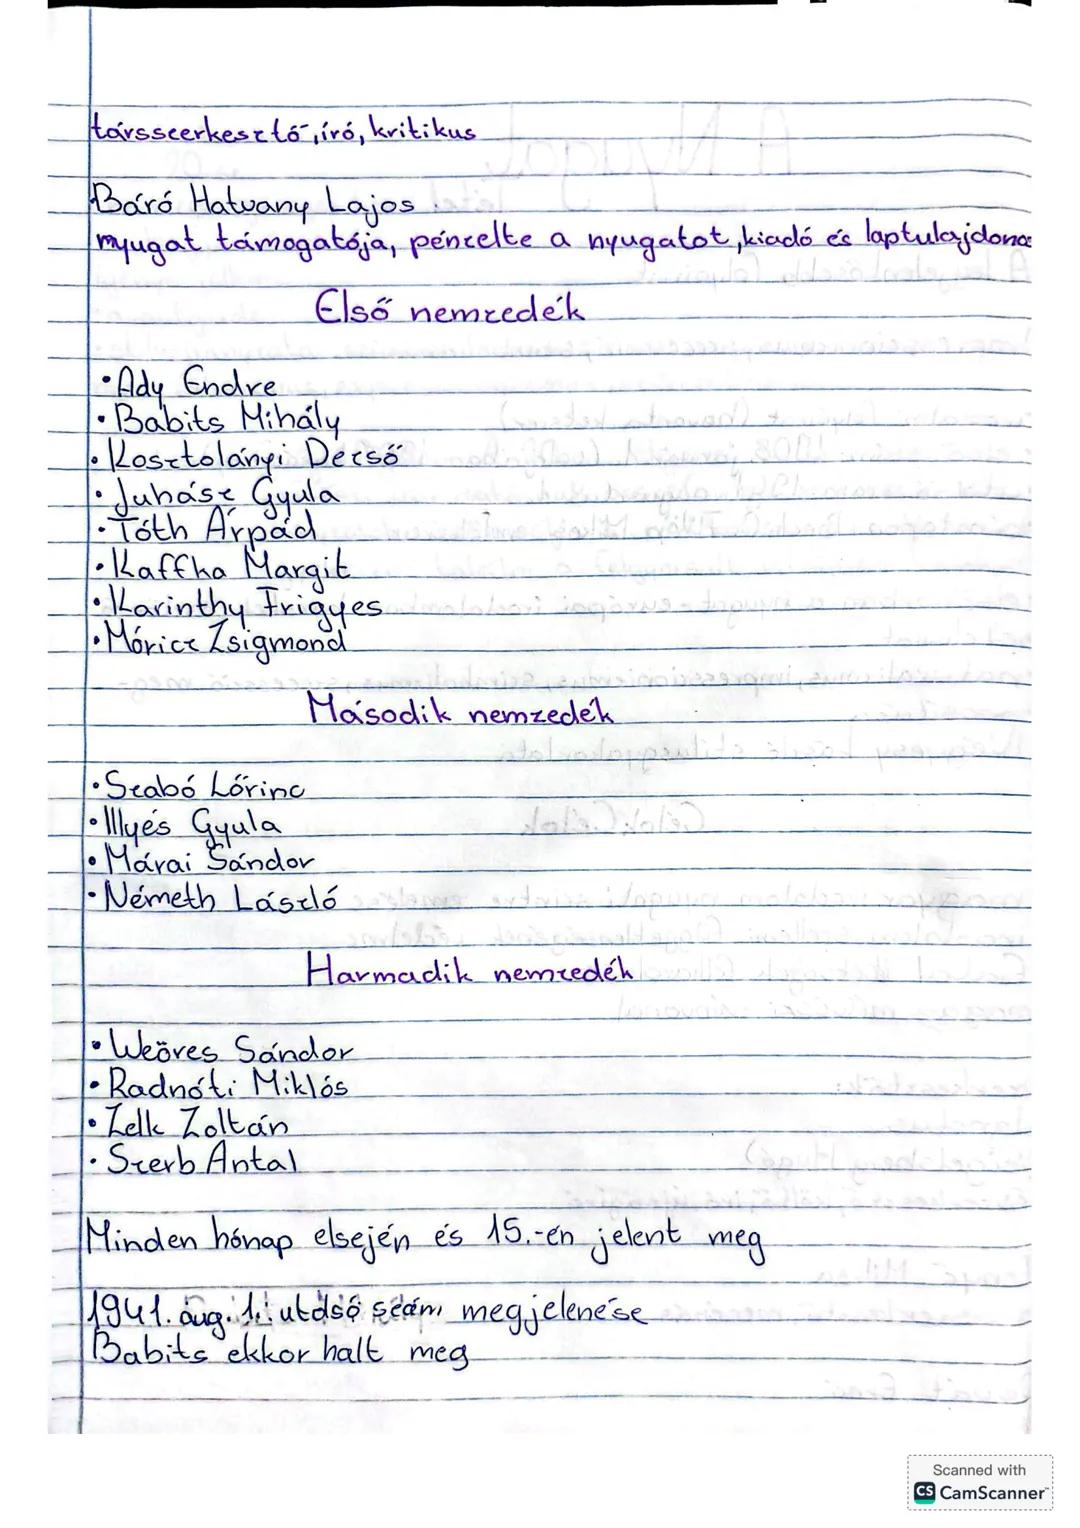 társszerkesztő, író, kritikus
Báró Hatvany Lajos
nyugat támogatója, pénzelte a nyugatot, kiadó és laptulajdona
Első nemzedék
• Ady Endre
• Babits Mihály
• Kosztolányi Dezső
• Juhász Gyula
• Tóth Árpád
• Kaffka Margit
• Karinthy Frigyes
• Móricz Zsigmond
Második nemzedék
• Szabó Lőrinc
• Illyés Gyula
• Márai Sándor
• Németh László
Harmadik nemzedék
• Weöres Sándor
• Radnóti Miklós
• Zelk Zoltán
• Szerb Antal
Minden hónap elsején és 15.-én jelent meg
1941. aug. 1.: utolsó szám megjelenése
Babits ekkor halt meg
Scanned with
CS CamScanner